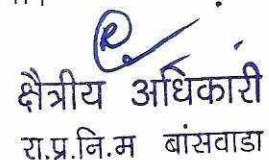 क्षेत्रीय अधिकारी
रा.प्र.नि.म बांसवाडा